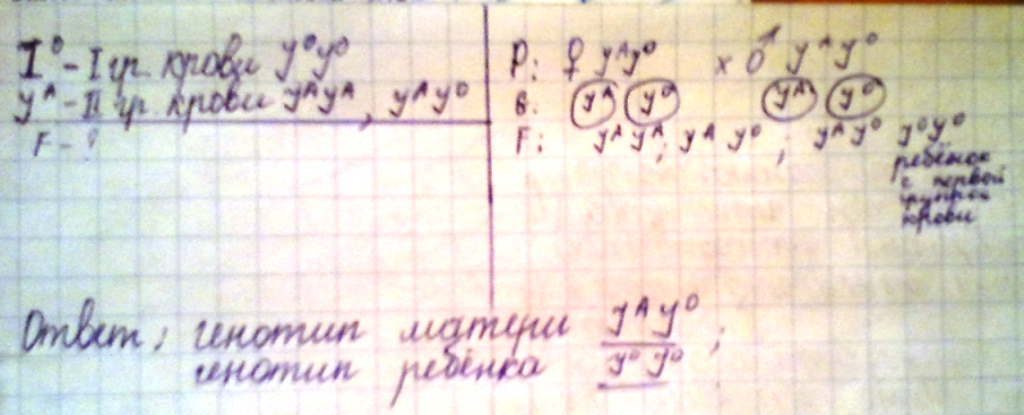 I⁰ - I гр. крови J⁰J⁰
Jᴬ - II гр. крови JᴬJᴬ, JᴬJ⁰
F - ?
P: ♀ JᴬJ⁰ x ♂ JᴬJ⁰
G: Jᴬ J⁰ Jᴬ J⁰
F: JᴬJᴬ; JᴬJ⁰; JᴬJ⁰ J⁰J⁰
ребёнок
с первой
группой
крови
Ответ: генотип матери JᴬJ⁰;
генотип ребёнка J⁰J⁰